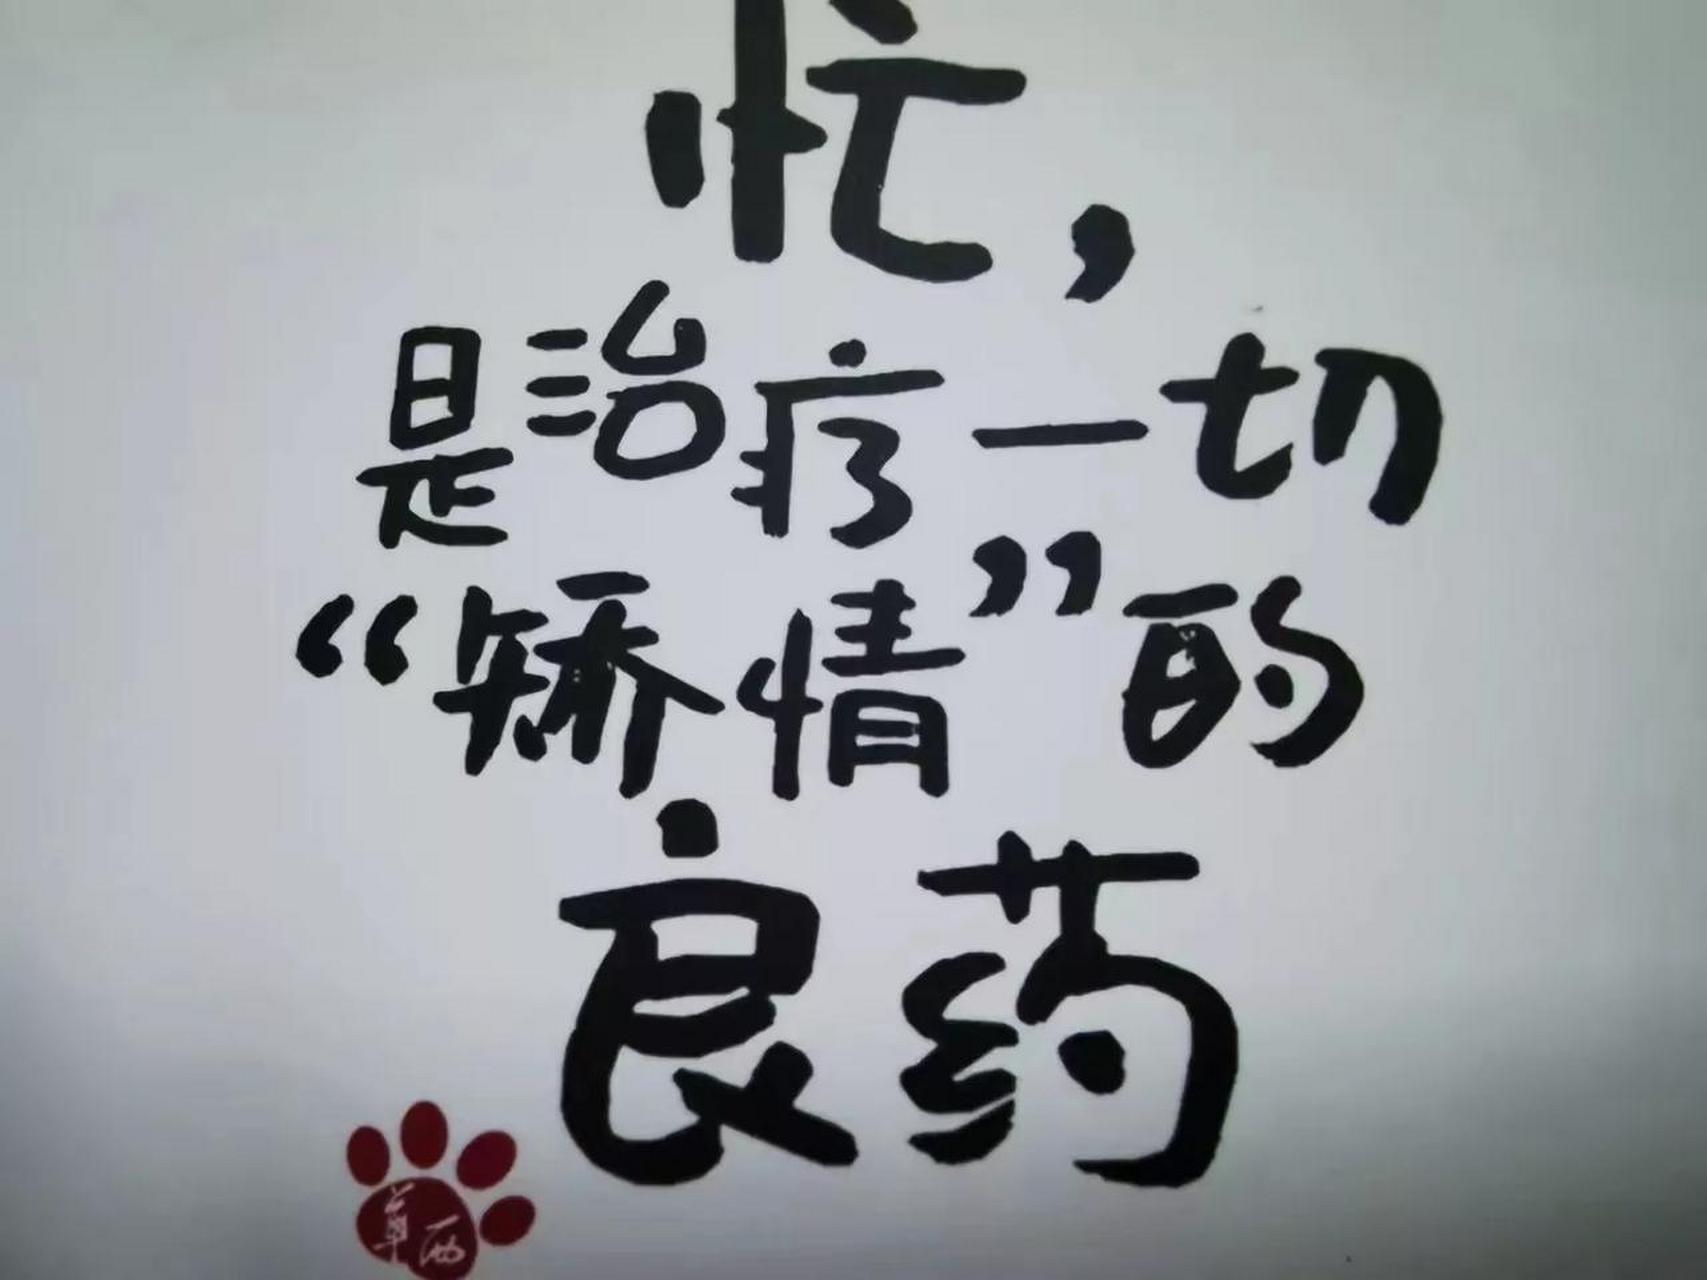 忙，
是治疗一切
“矫情”的
良药